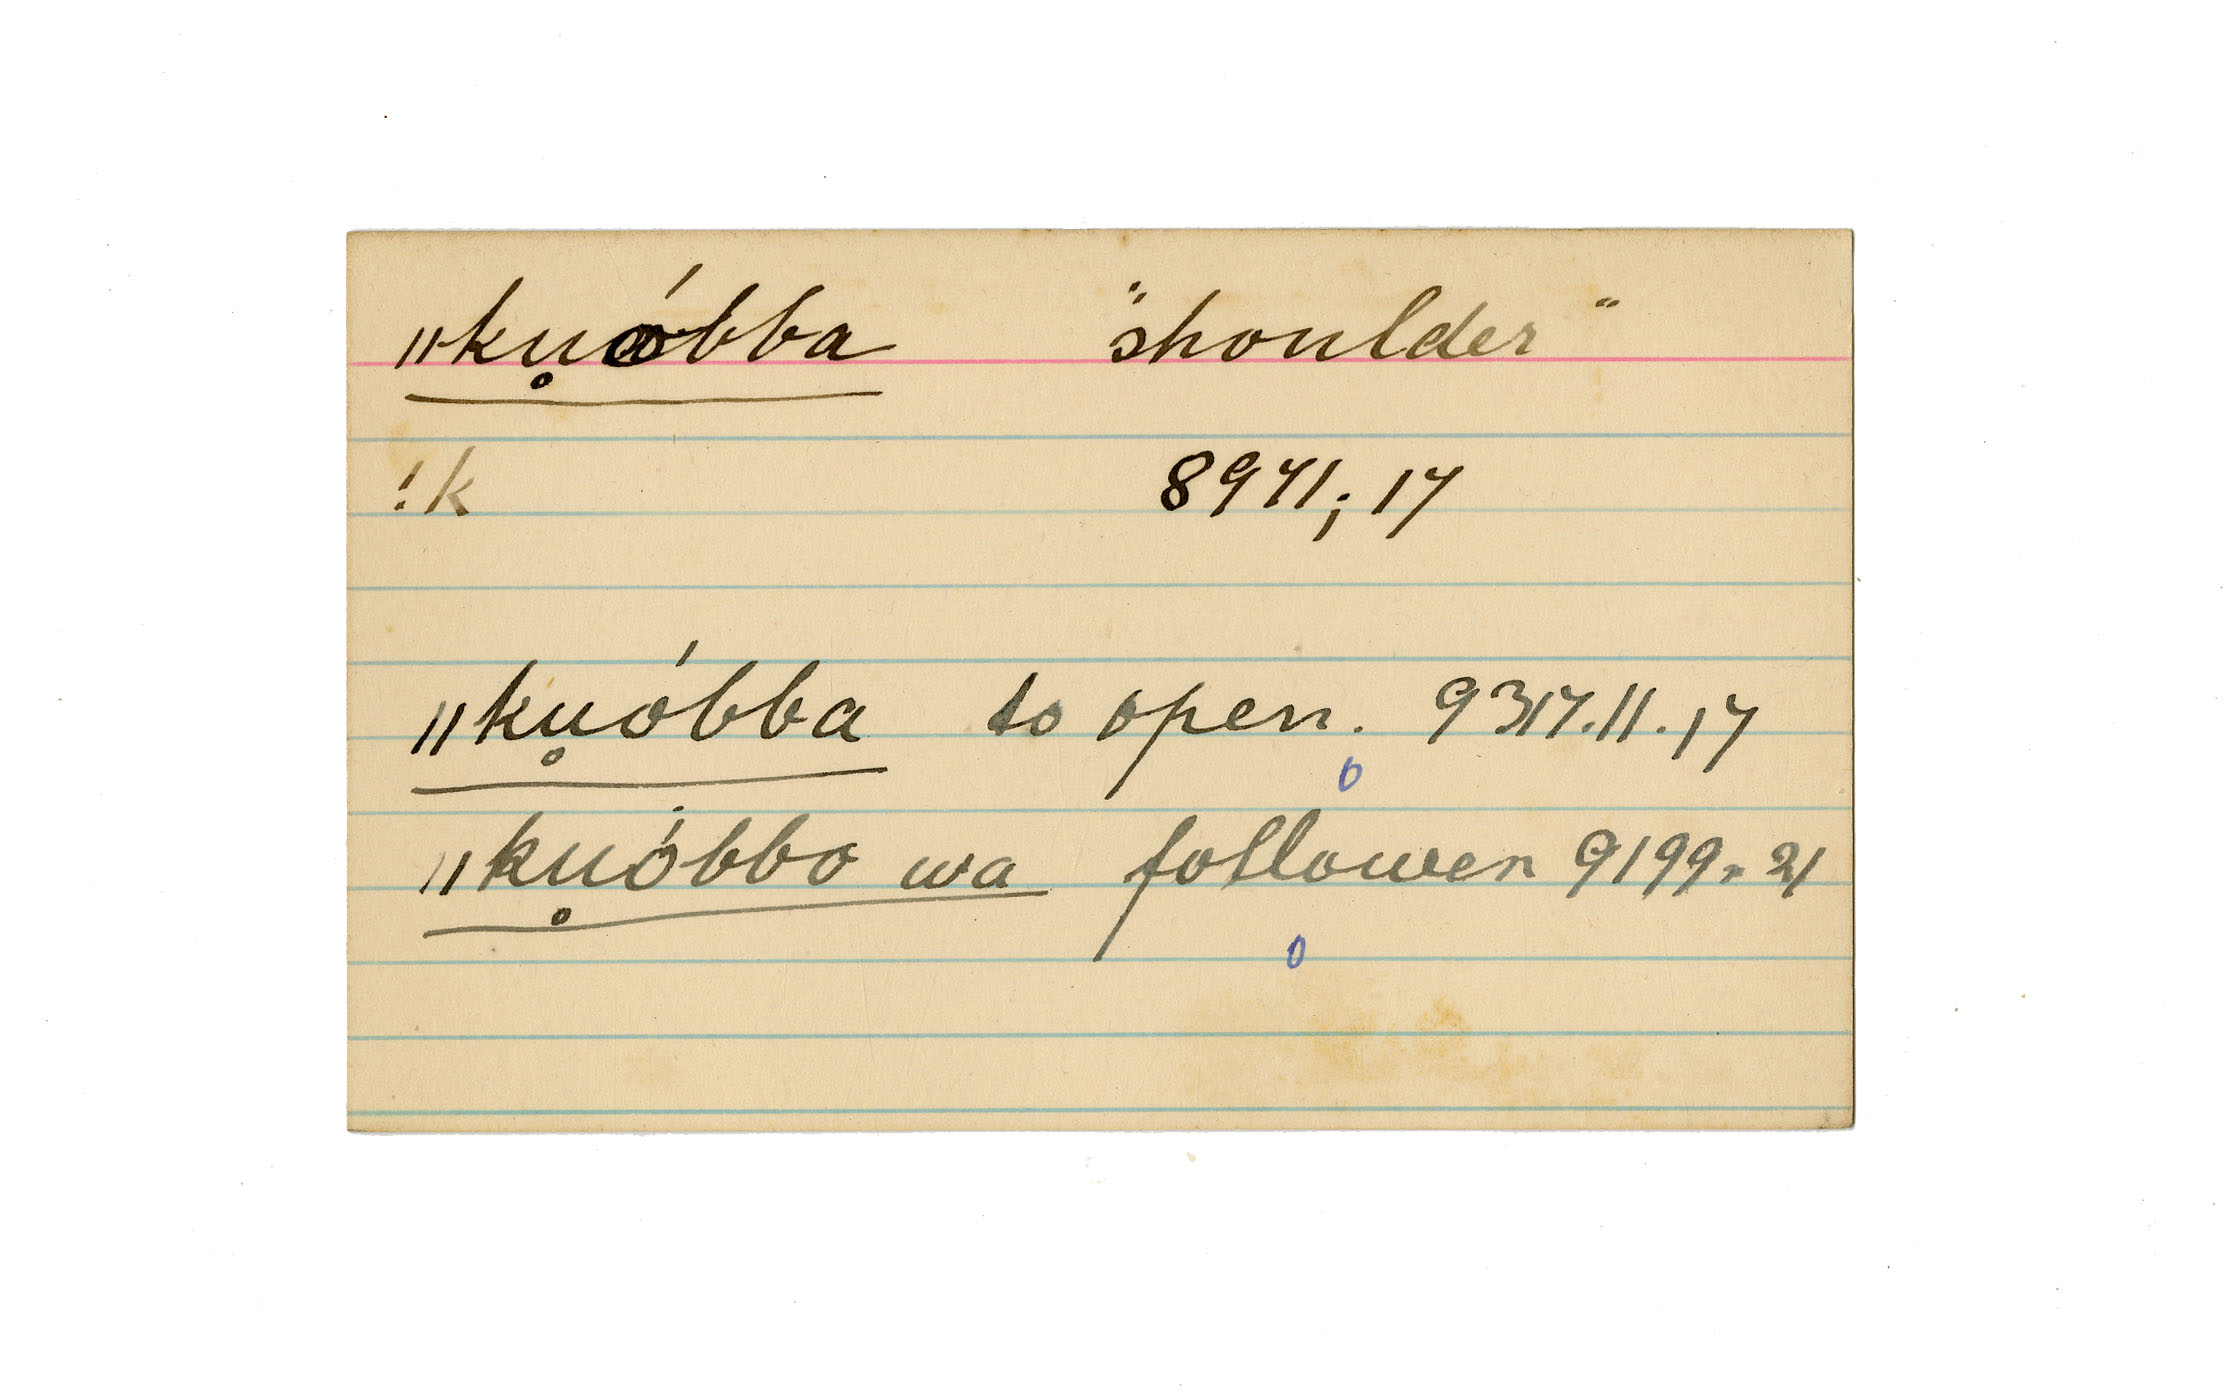 ǁku̥óbba "shoulder"
!k 8971; 17
ǁku̥óbba to open. 9317.11.17
o
ǁku̥óbbo wa follower 9199. 21
o